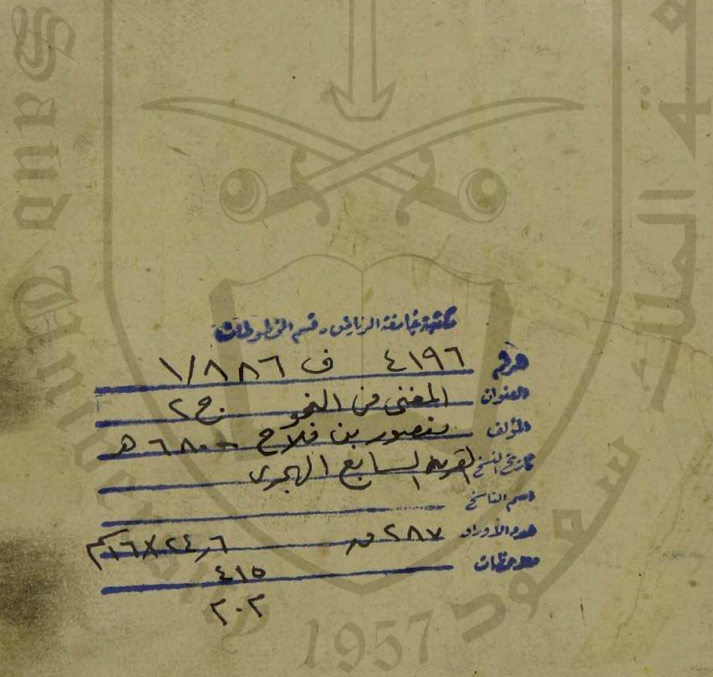 مكتبة جامعة الرياض - قسم المخطوطات
الرقم ٤١٩٦ ف ٨٨٦/١
العنوان المغني في النحو ج ٢
المؤلف منصور بن فلاح - ٦٨٠ هـ
تاريخ النسخ القرن السابع الهجري
اسم الناسخ
عدد الأوراق ٢٨٧ ق ٢٤٫٦ × ١٦ سم
ملاحظات ٤١٥
٢٠٢
1957